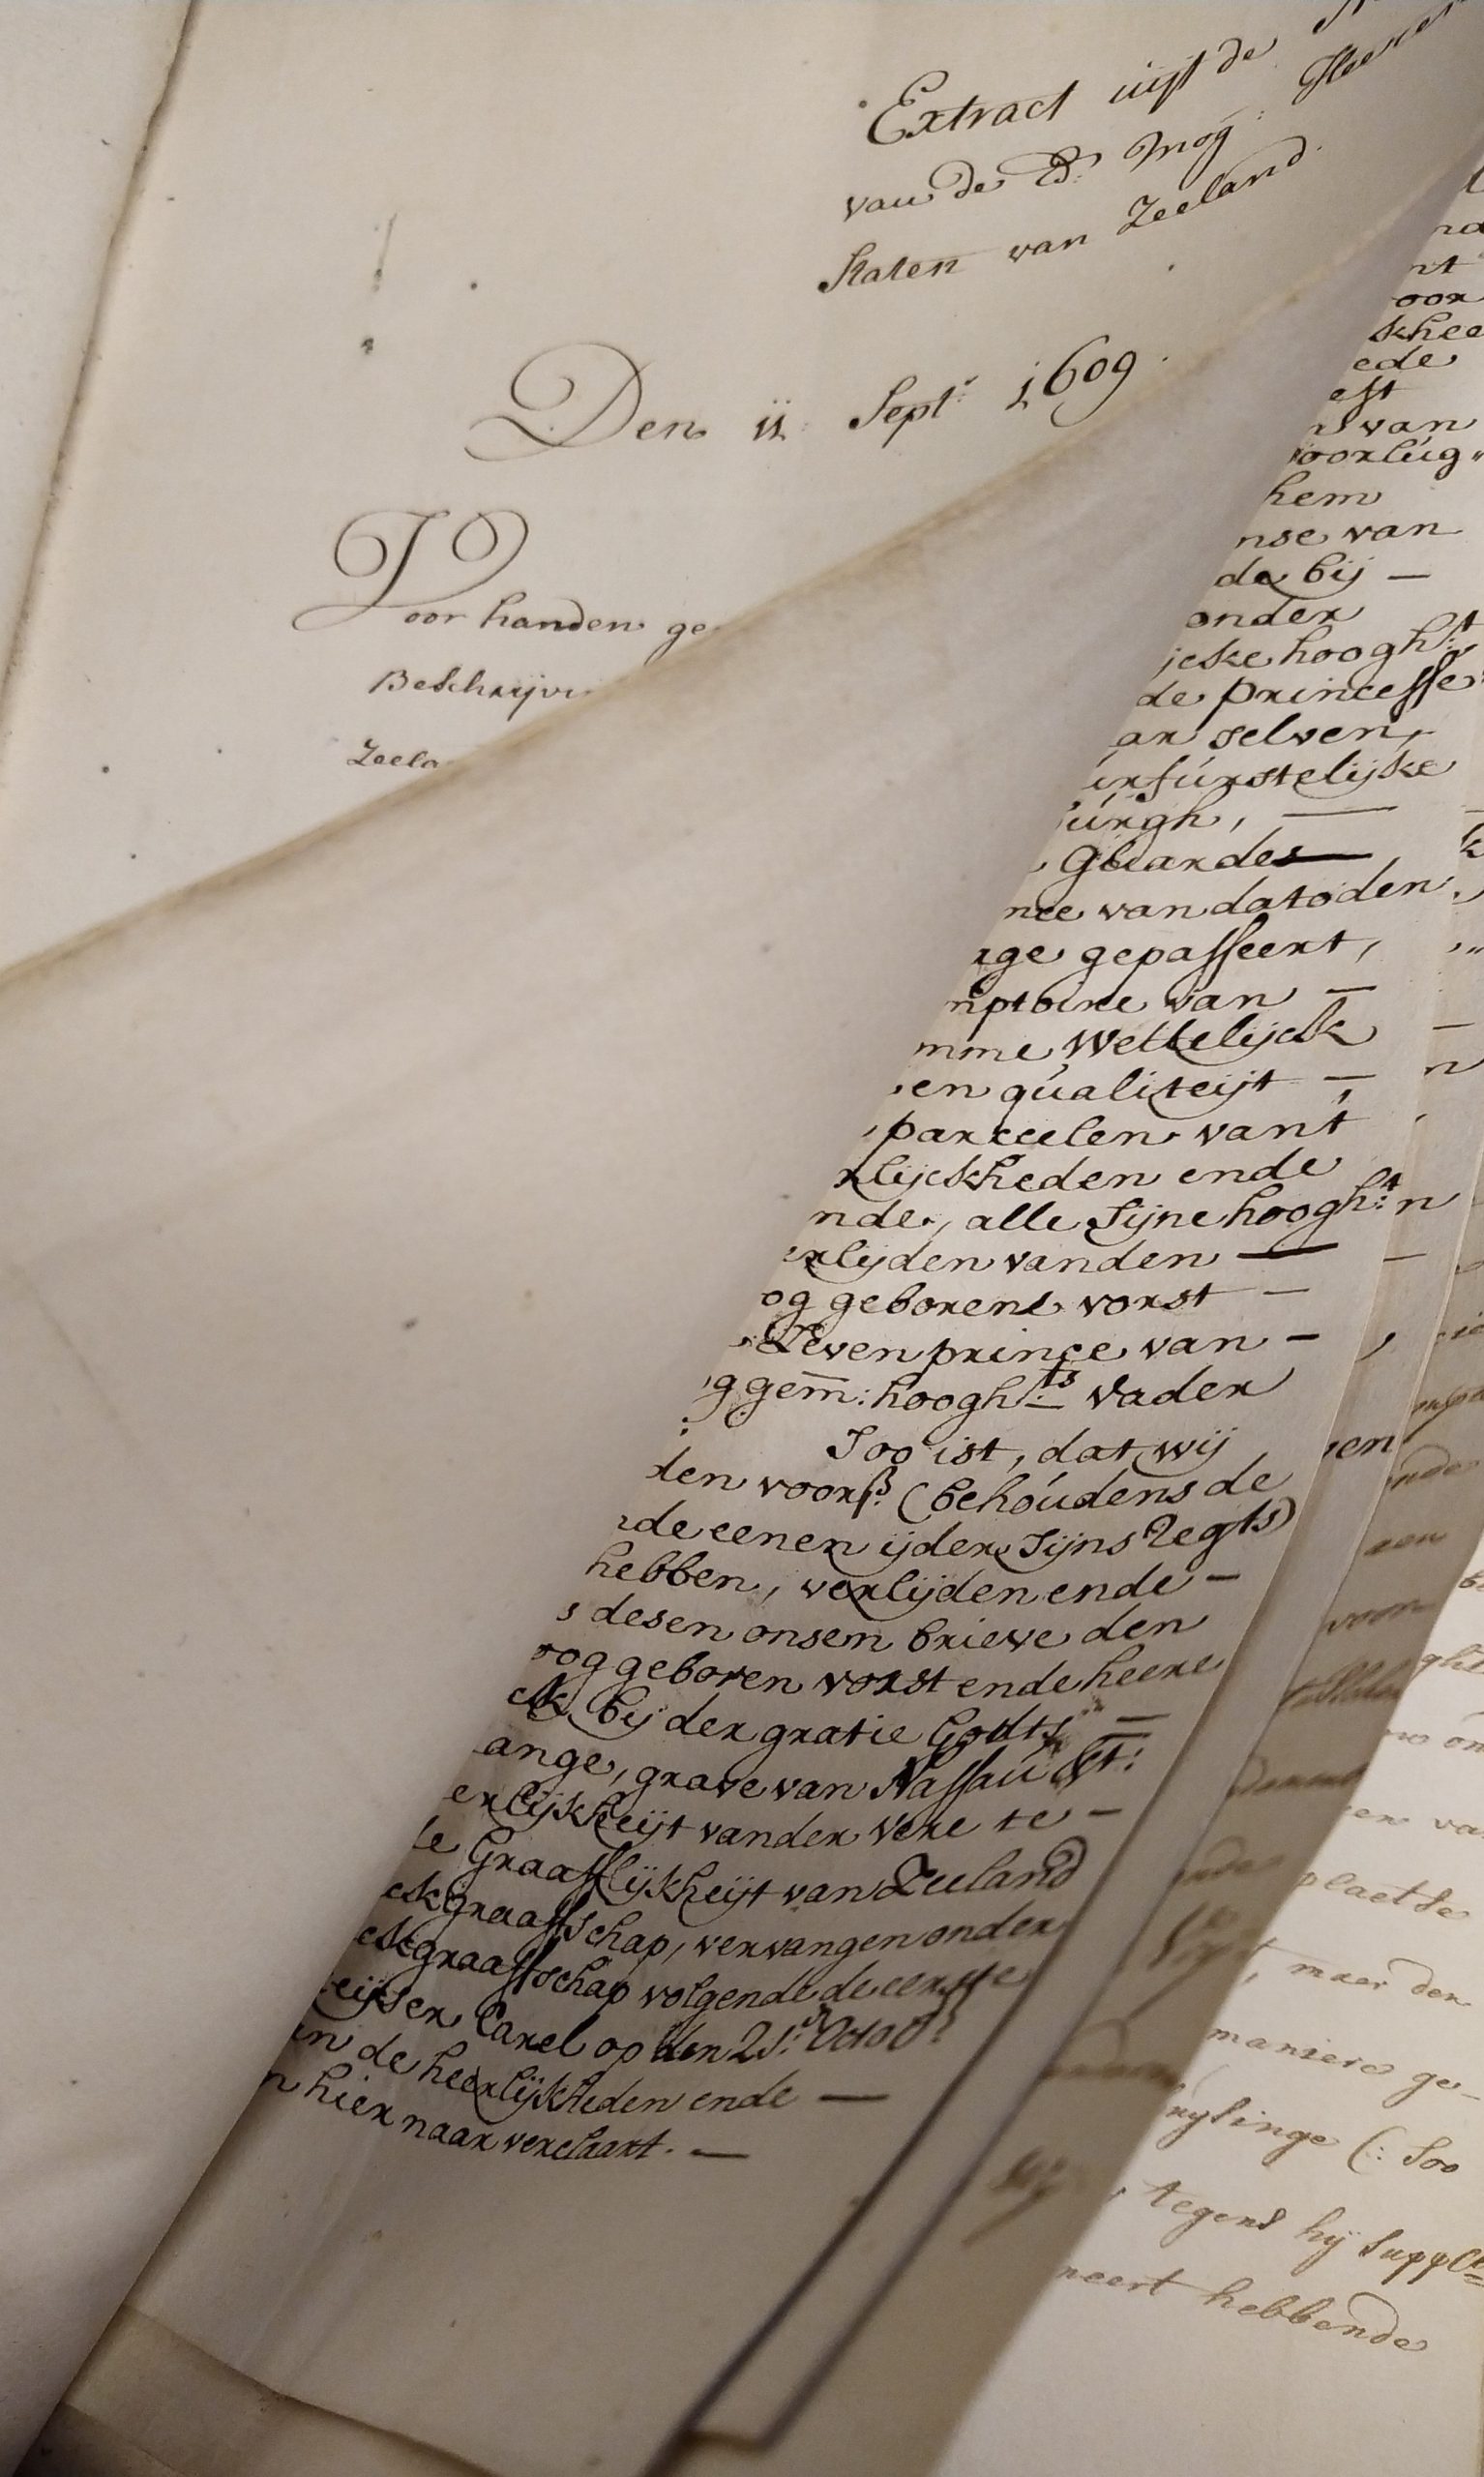 Extract uijt de
van de Ed: Mog: Heeren
Staten van Zeeland.
Den 11 Sept: 1609.
Voor handen ge
Beschrijvi
Zeela
nt
oor
khee
ede
eft
van
oorlúg"
hem
nse van
de bij —
onder
ijcke hoogh:t
de princesse
ar selven,
urfúrstelijke
úrgh, —
Guardes —
nce van dato den
age gepasseert,
mptoire van —
mme Wettelijck
en qúaliteijt —
parceelen vant
rlijckheden ende
nde, alle Sijne hoogh:t
erlijden vanden —
og geborene vorst —
Leven prince van —
g gem: hoogh:ts Vader
Soo ist, dat wij
den voors. (behoúdens de
nde eenen ijder Sijns Regts)
hebben, verlijden ende —
s desen onsen brieve den
oog geboren vorst ende heere
ck bij der gratie Godts —
ange, grave van Nassaú &t:
erlijkheijt vander Vere te —
le Graafflijkheijt van Zeeland
ck graaffschap, vervangen onder
esk graaffschap volgende de eerste
eijser Carel op den 21:' Octob:
in de heerlijkheden ende —
n hier naar verclaart. —
n
en
nde
een
voor
ght
on
er va
plaetse
, maer den
maniere ge-
nylinge (: Soo
tegens hij Supplt
neert hebbende